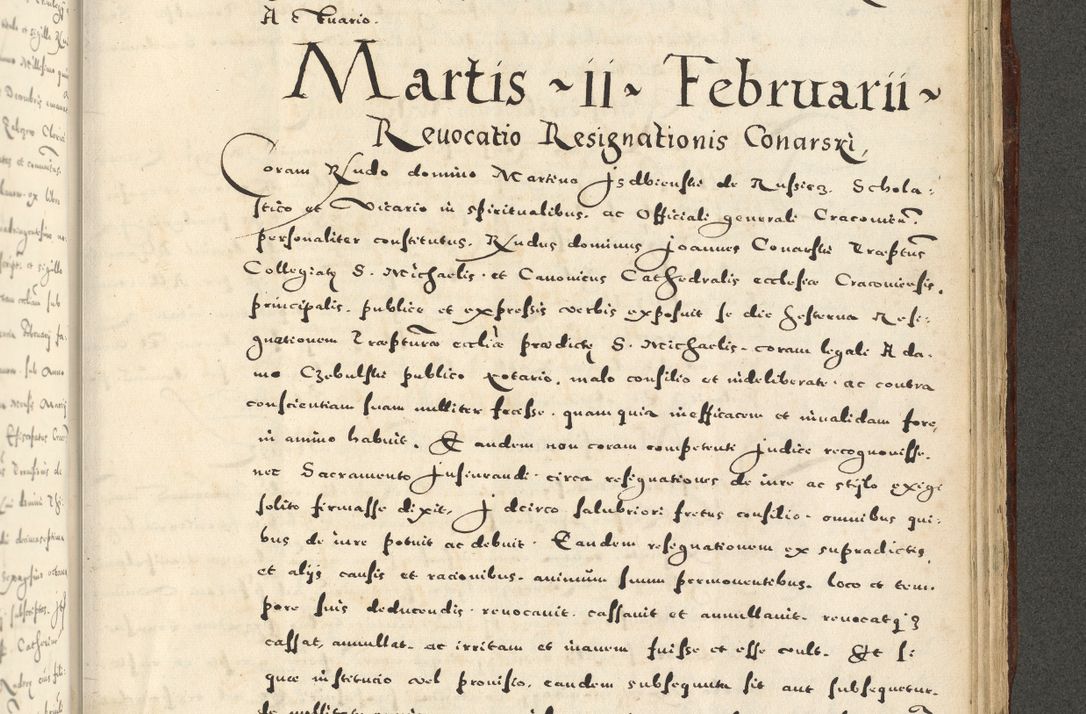 Actuario.
Martis ~ ii ~ Februarii ~
Revocatio Resignationis Conarski,
Coram Rndo domino Martino Jsdbienski de Russiecz. Schola-
stico et Vicario in spiritualibus. ac Officiali generali Cracovien.
personaliter constitutus. Rndus dominus Joannes Conarski Præptus
Collegiatę S. Michaelis. et Canonicus Cathedralis ecclesiæ Cracoviensis.
principalis. publice et expressis verbis exposuit se die hesterna Resi-
gnationem Præpturæ eccliæ prædictę S. Michaelis. coram legali Ada-
mo Czebulski publico notario. malo consilio et indeliberate. ac contra
conscientiam suam nulliter fecisse. quam quia inefficacem et invalidam fore,
in animo habuit. Et eandem non coram competenti Judice recognovisse.
nec Sacramento Jusiurandi. circa resignationes de iure ac stylo exigi
solito firmasse dixit, Jdcirco salubriori fretus consilio. omnibus qui-
bus de iure potuit ac debuit. Eandem resignationem ex supradictis
et alijs causis et racionibus. animum suum permoventibus. loco et tem-
pore suis deducendis. revocavit. cassavit et annullavit. revocatqz
cassat, annullat. ac irritam et inanem fuisse et esse vult. Et si
quæ institucio vel provisio. eandem subsequuta sit aut subsequetur.
de nullitate